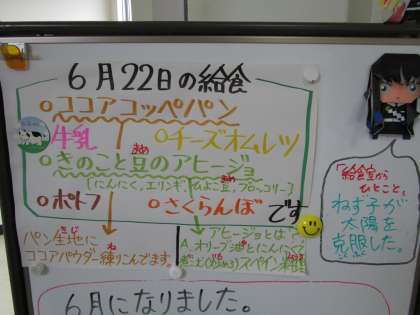 6月22日の給食
○ココアコッペパン
牛乳 ○チーズオムレツ
○きのこと豆のアヒージョ
[にんにく,エリンギ,ひよこ豆,ブロッコリー]
○ポトフ ○さくらんぼ です
パン生地に
ココアパウダー練りこんでます。
アヒージョとは?
A.オリーブ油とにんにくで
スペイン料理
「給食室から
ひとこと」
ねず子が
太陽を
克服した。
6月になりました。